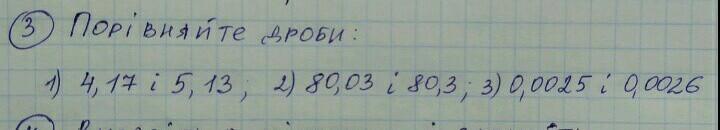 3 Порівняйте дроби:
1) 4,17 і 5,13; 2) 80,03 і 80,3; 3) 0,0025 і 0,0026